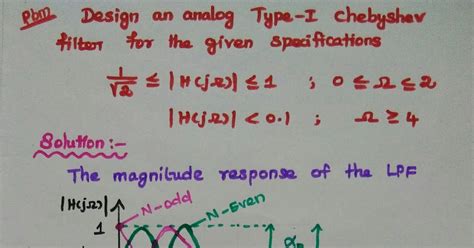 Pbm Design an analog Type-I chebyshev
filter for the given specifications
1/√2 ≤ |H(jΩ)| ≤ 1 ; 0 ≤ Ω ≤ 2
|H(jΩ)| < 0.1 ; Ω ≥ 4
Solution :-
The magnitude response of the LPF
|H(jΩ)| N-odd N-Even
1
αp